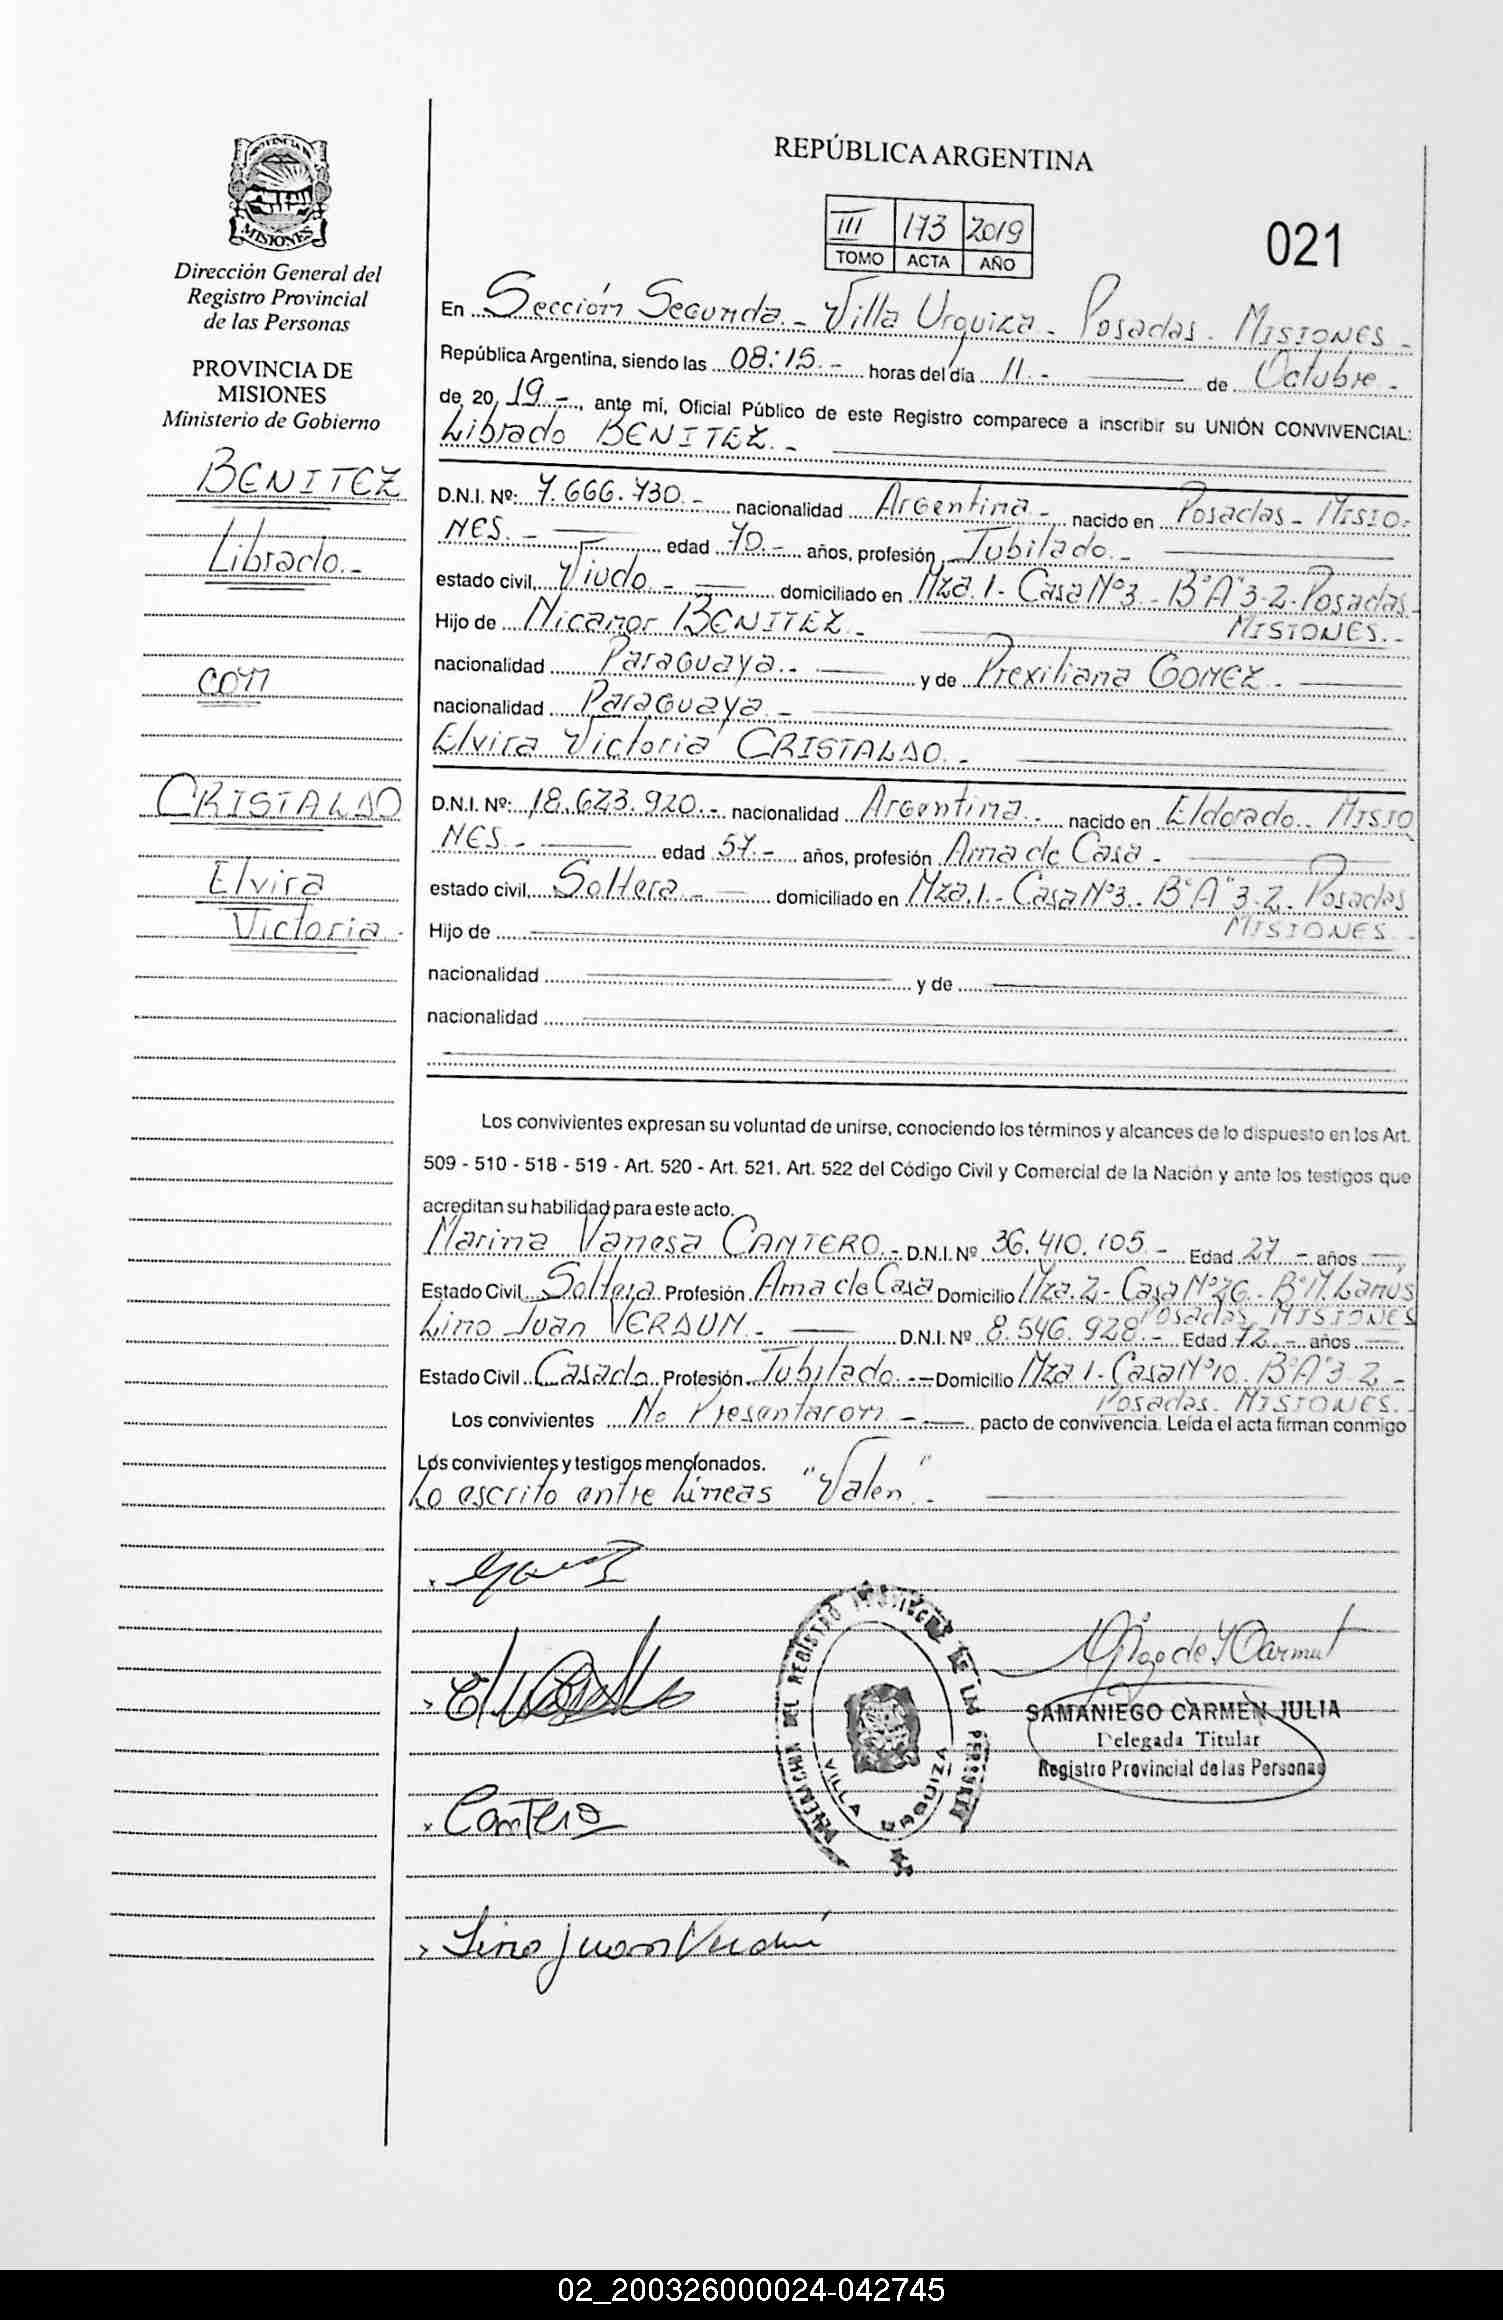 REPÚBLICA ARGENTINA
III 173 2019
TOMO ACTA AÑO
021
PROVINCIA DE
MISIONES
Dirección General del
Registro Provincial
de las Personas
PROVINCIA DE
MISIONES
Ministerio de Gobierno
BENITEZ
Librado.-
con
CRISTALDO
Elvira
Victoria.-
En Sección Segunda.- Villa Urquiza.- Posadas.- MISIONES.-
República Argentina, siendo las 08:15.- horas del día 11.- de Octubre.-
de 2019.-, ante mí, Oficial Público de este Registro comparece a inscribir su UNIÓN CONVIVENCIAL:
Librado BENITEZ.-
D.N.I. Nº: 7.666.730.- nacionalidad Argentina.- nacido en Posadas- MISIO-
NES.- edad 70.- años, profesión Jubilado.-
estado civil, Viudo.- domiciliado en Mza. 1- Casa Nº3.- Bº"A"3-2- Posadas-
MISIONES.-
Hijo de Nicanor BENITEZ.-
nacionalidad Paraguaya.- y de Prexiliana GOMEZ.-
nacionalidad Paraguaya.-
Elvira Victoria CRISTALDO.-
D.N.I. Nº: 18.623.920.- nacionalidad Argentina.- nacido en Eldorado.- MISIO
NES.- edad 57.- años, profesión Ama de Casa.-
estado civil, Soltera.- domiciliado en Mza.1.- Casa Nº3.- Bº"A"3-2.- Posadas
MISIONES.-
Hijo de
nacionalidad y de
nacionalidad
Los convivientes expresan su voluntad de unirse, conociendo los términos y alcances de lo dispuesto en los Art.
509 - 510 - 518 - 519 - Art. 520 - Art. 521. Art. 522 del Código Civil y Comercial de la Nación y ante los testigos que
acreditan su habilidad para este acto.
Marina Vanesa CANTERO.- D.N.I. Nº 36.410.105.- Edad 27.- años
Estado Civil Soltera Profesión Ama de Casa Domicilio Mza.2- Casa Nº26.- Bº M. Lanús
Posadas, MISIONES
Lino Juan VERDUN.- D.N.I. Nº 8.546.928.- Edad 72.- años
Estado Civil Casado Profesión Jubilado.- Domicilio Mza 1- Casa Nº10. Bº"A"3-2.-
Posadas. MISIONES.-
Los convivientes No Presentaron.- pacto de convivencia. Leída el acta firman conmigo
Los convivientes y testigos mencionados.
Lo escrito entre líneas "Valen".-
Cantero
Lino Juan Verdún
DELEGACION DEL REGISTRO PROVINCIAL DE LAS PERSONAS
VILLA URQUIZA
SAMANIEGO CARMEN JULIA
Delegada Titular
Registro Provincial de las Personas
02_200326000024-042745